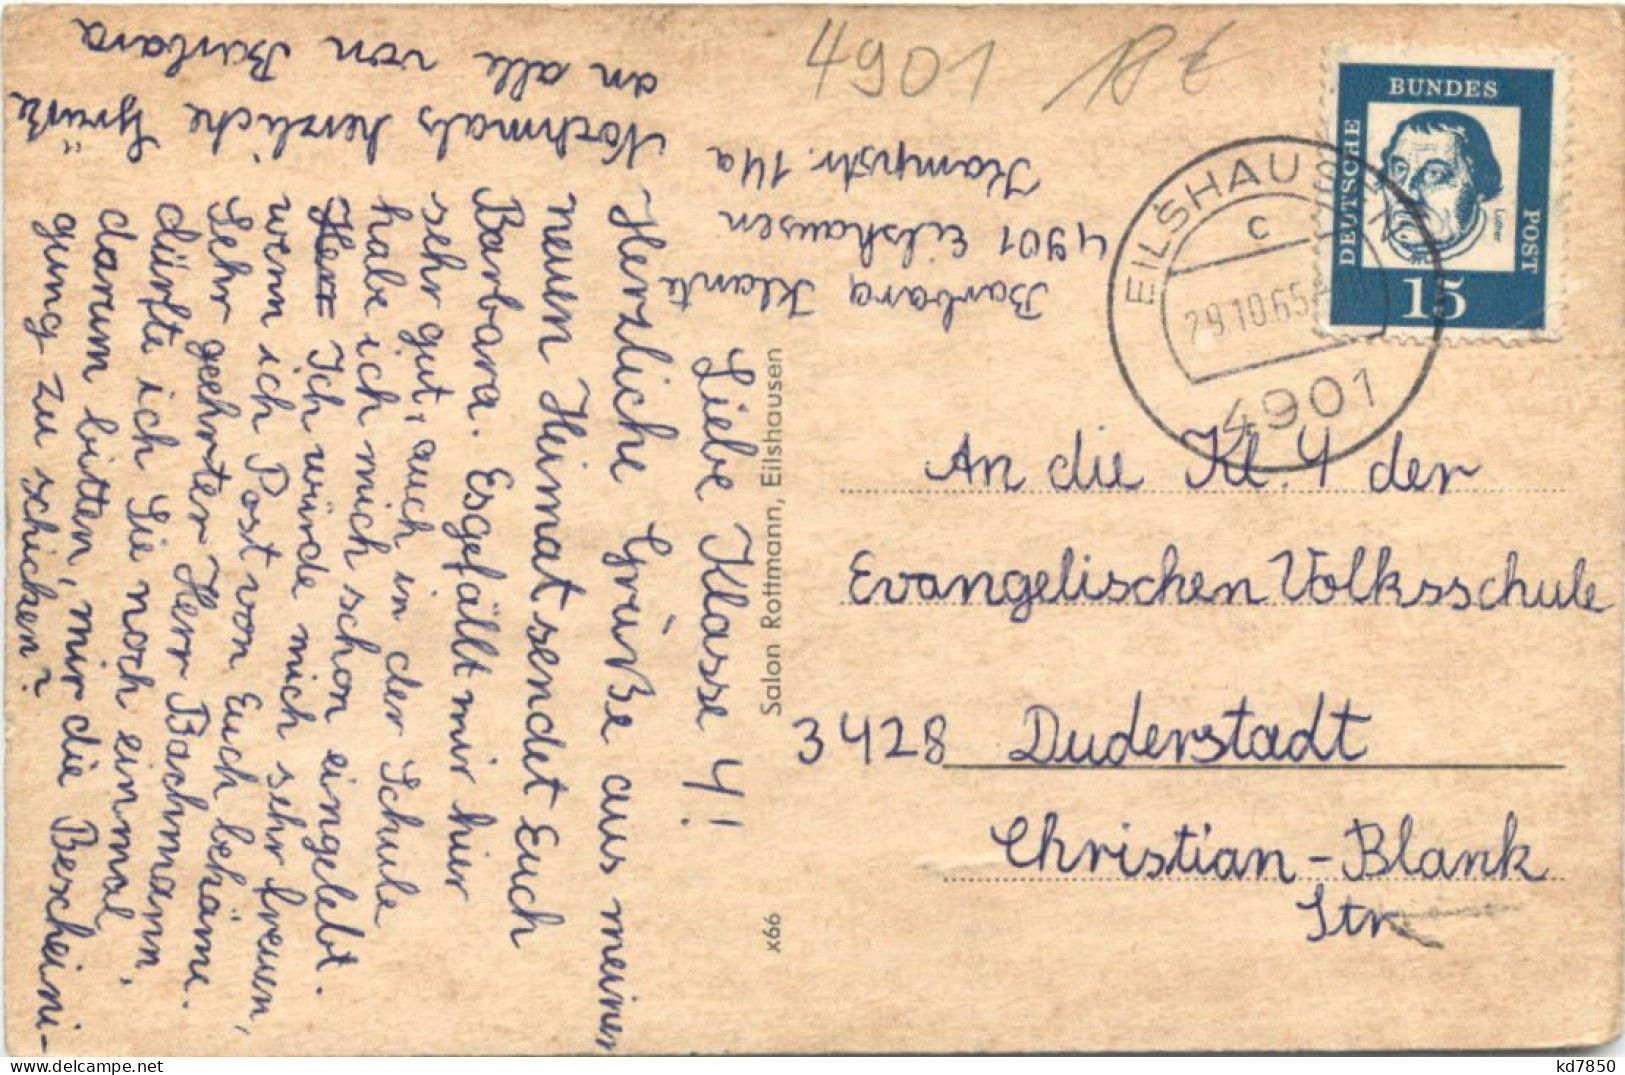 4901
Barbara Klante
4901 Eilshausen
Kampstr. 14a
BUNDES
DEUTSCHE
POST
Luther
15
EILSHAUSEN
c
29.10.65
4901
Liebe Klasse 4!
Herzliche Grüße aus meiner
neuen Heimat sendet Euch
Barbara. Es gefällt mir hier
sehr gut, auch in der Schule
habe ich mich schon eingelebt.
Ich würde mich sehr freuen,
wenn ich Post von Euch bekäme.
Sehr geehrter Herr Bachmann,
dürfte ich Sie noch einmal
darum bitten, mir die Bescheini-
gung zu schicken?
Nochmals herzliche Grüße
an alle von Barbara
Salon Rottmann, Eilshausen
x66
An die Kl. 4 der
Evangelischen Volksschule
3428 Duderstadt
Christian-Blank
Str
kd7850